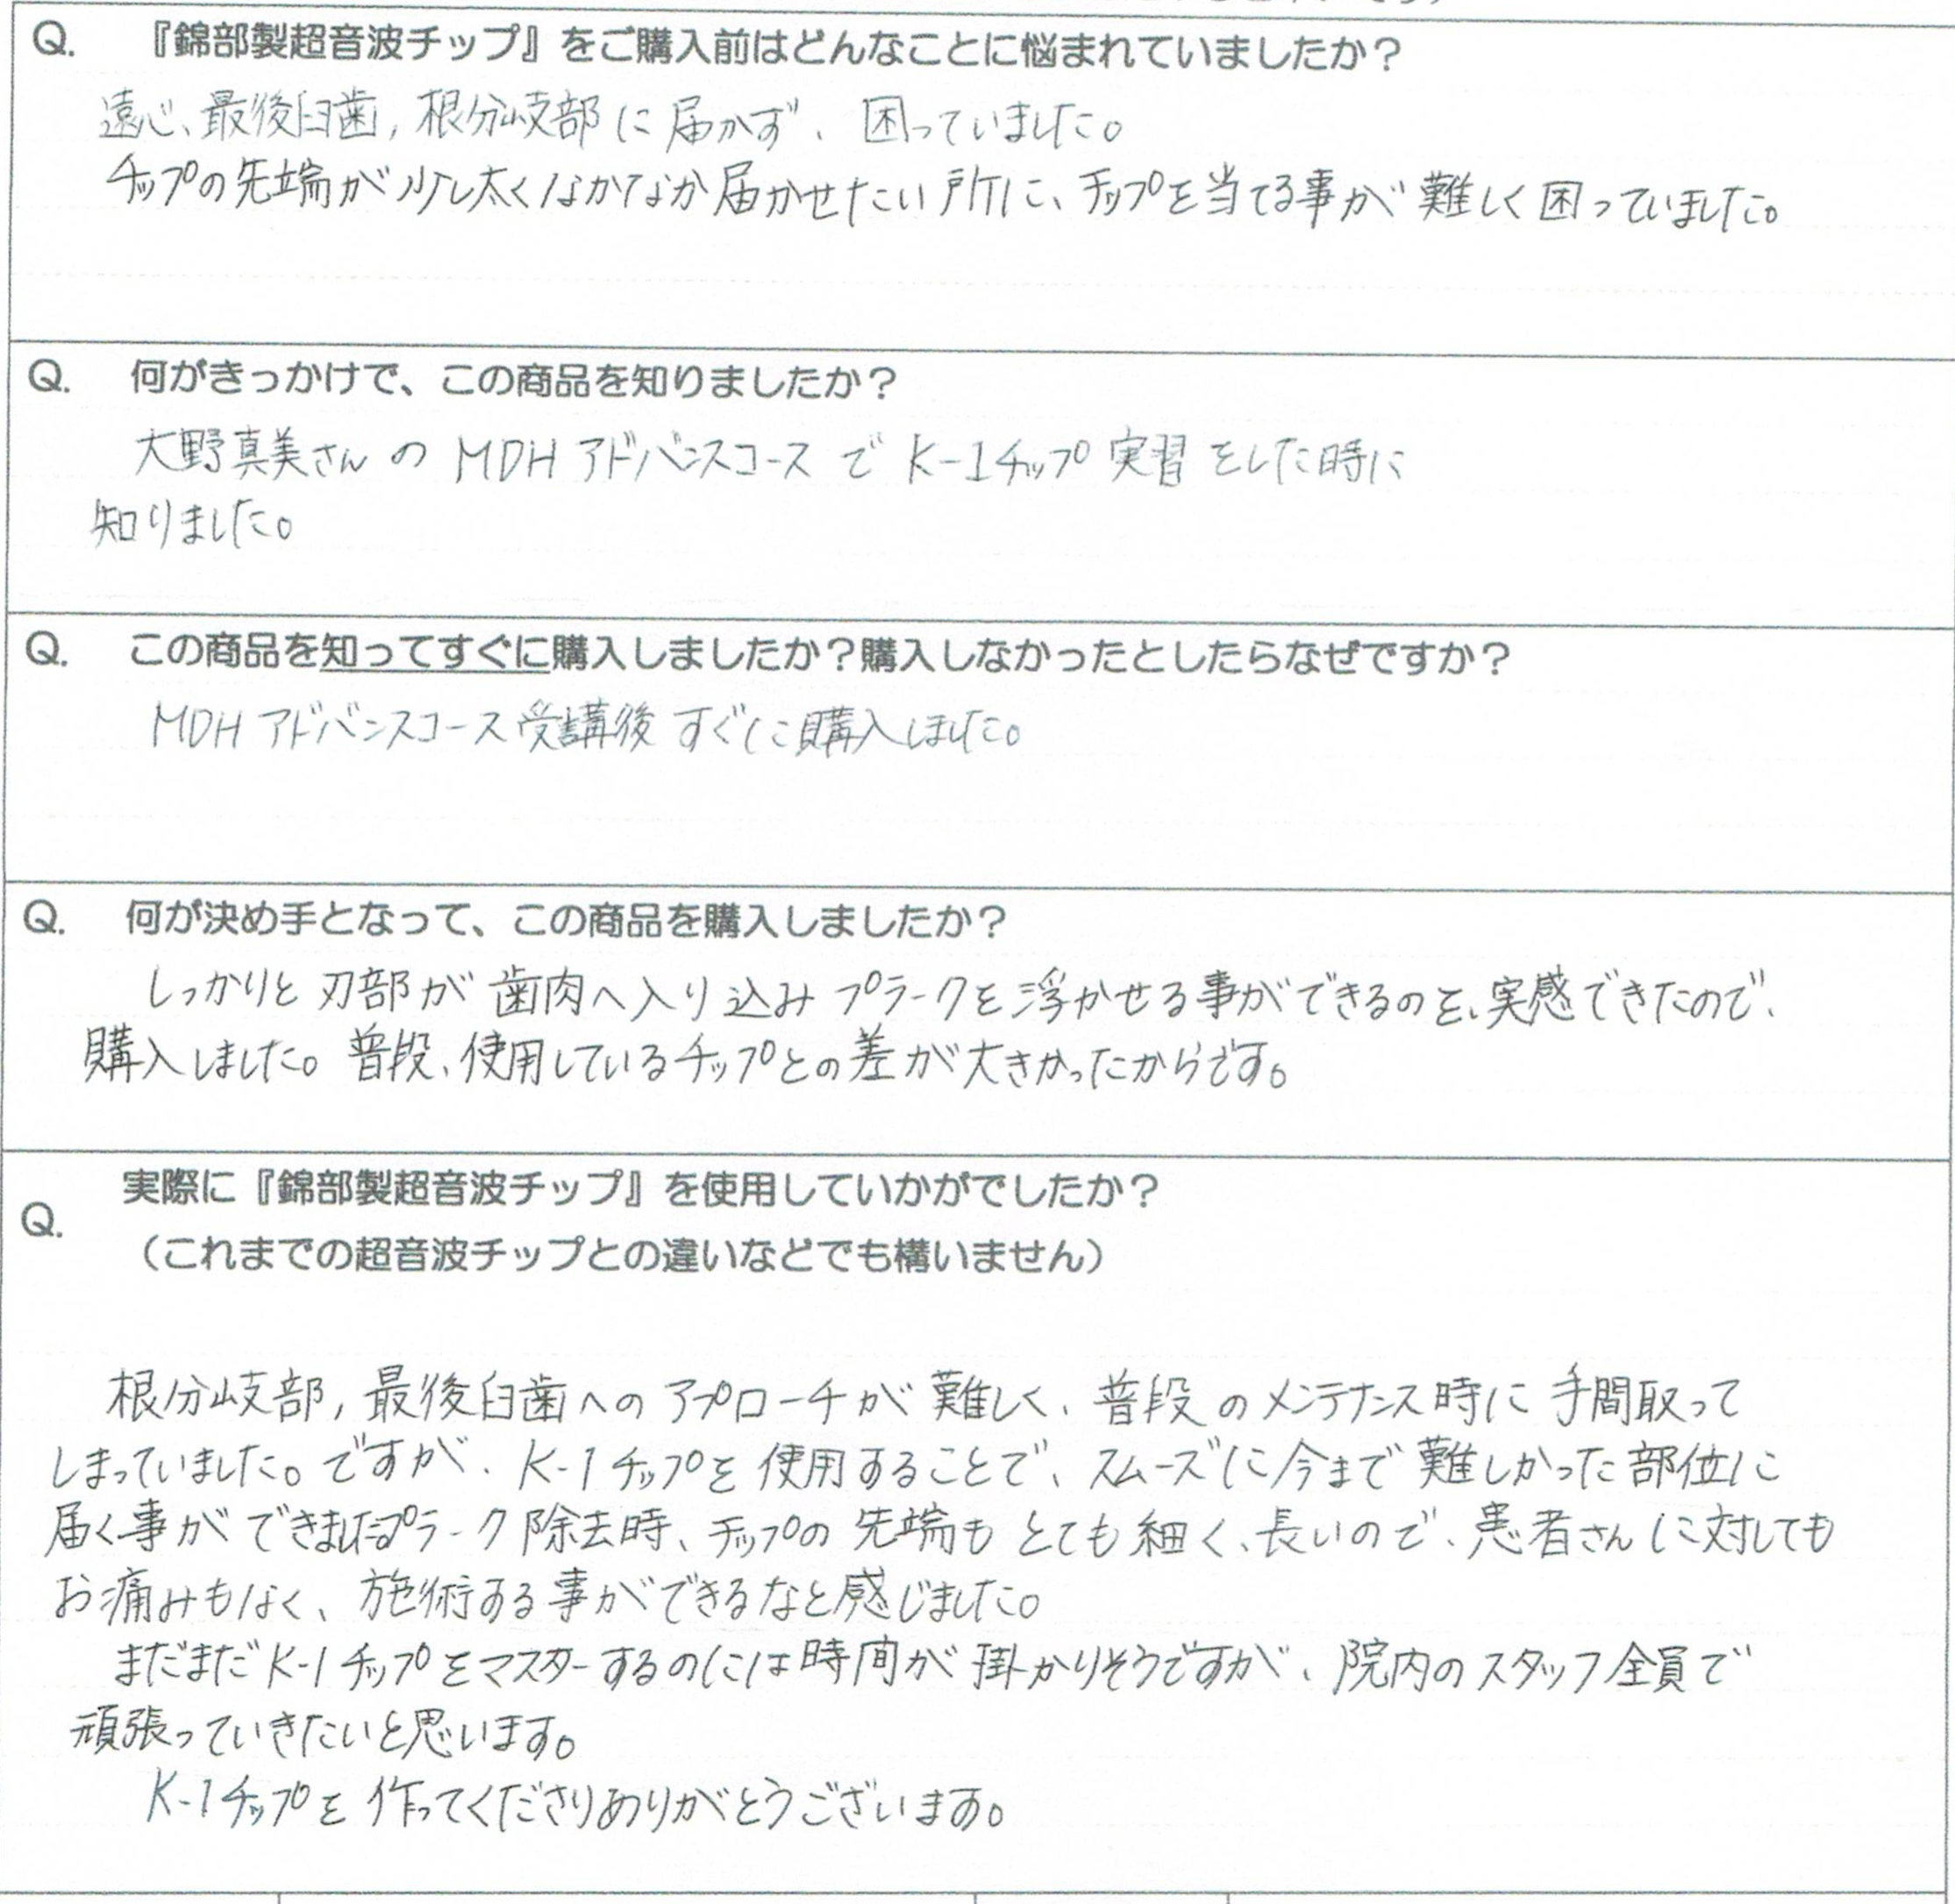 Q. 『錦部製超音波チップ』をご購入前はどんなことに悩まれていましたか？
遠心、最後臼歯，根分岐部に届かず、困っていました。
チップの先端が少し太くなかなか届かせたい所に、チップを当てる事が難しく困っていました。
Q. 何がきっかけで、この商品を知りましたか？
大野真美さんの MDHアドバンスコースで K-1チップ実習をした時に
知りました。
Q. この商品を知ってすぐに購入しましたか？購入しなかったとしたらなぜですか？
MDHアドバンスコース受講後すぐに購入しました。
Q. 何が決め手となって、この商品を購入しましたか？
しっかりと刃部が歯肉へ入り込みプラークを浮かせる事ができるのを、実感できたので、
購入しました。普段、使用しているチップとの差が大きかったからです。
Q. 実際に『錦部製超音波チップ』を使用していかがでしたか？
（これまでの超音波チップとの違いなどでも構いません）
根分岐部，最後臼歯へのアプローチが難しく、普段のメンテナンス時に手間取って
しまっていました。ですが、K-1チップを使用することで、スムーズに今まで難しかった部位に
届く事ができました。プラーク除去時、チップの先端もとても細く、長いので、患者さんに対しても
お痛みもなく、施術する事ができるなと感じました。
まだまだK-1チップをマスターするのには時間が掛かりそうですが、院内のスタッフ全員で
頑張っていきたいと思います。
K-1チップを作ってくださりありがとうございます。